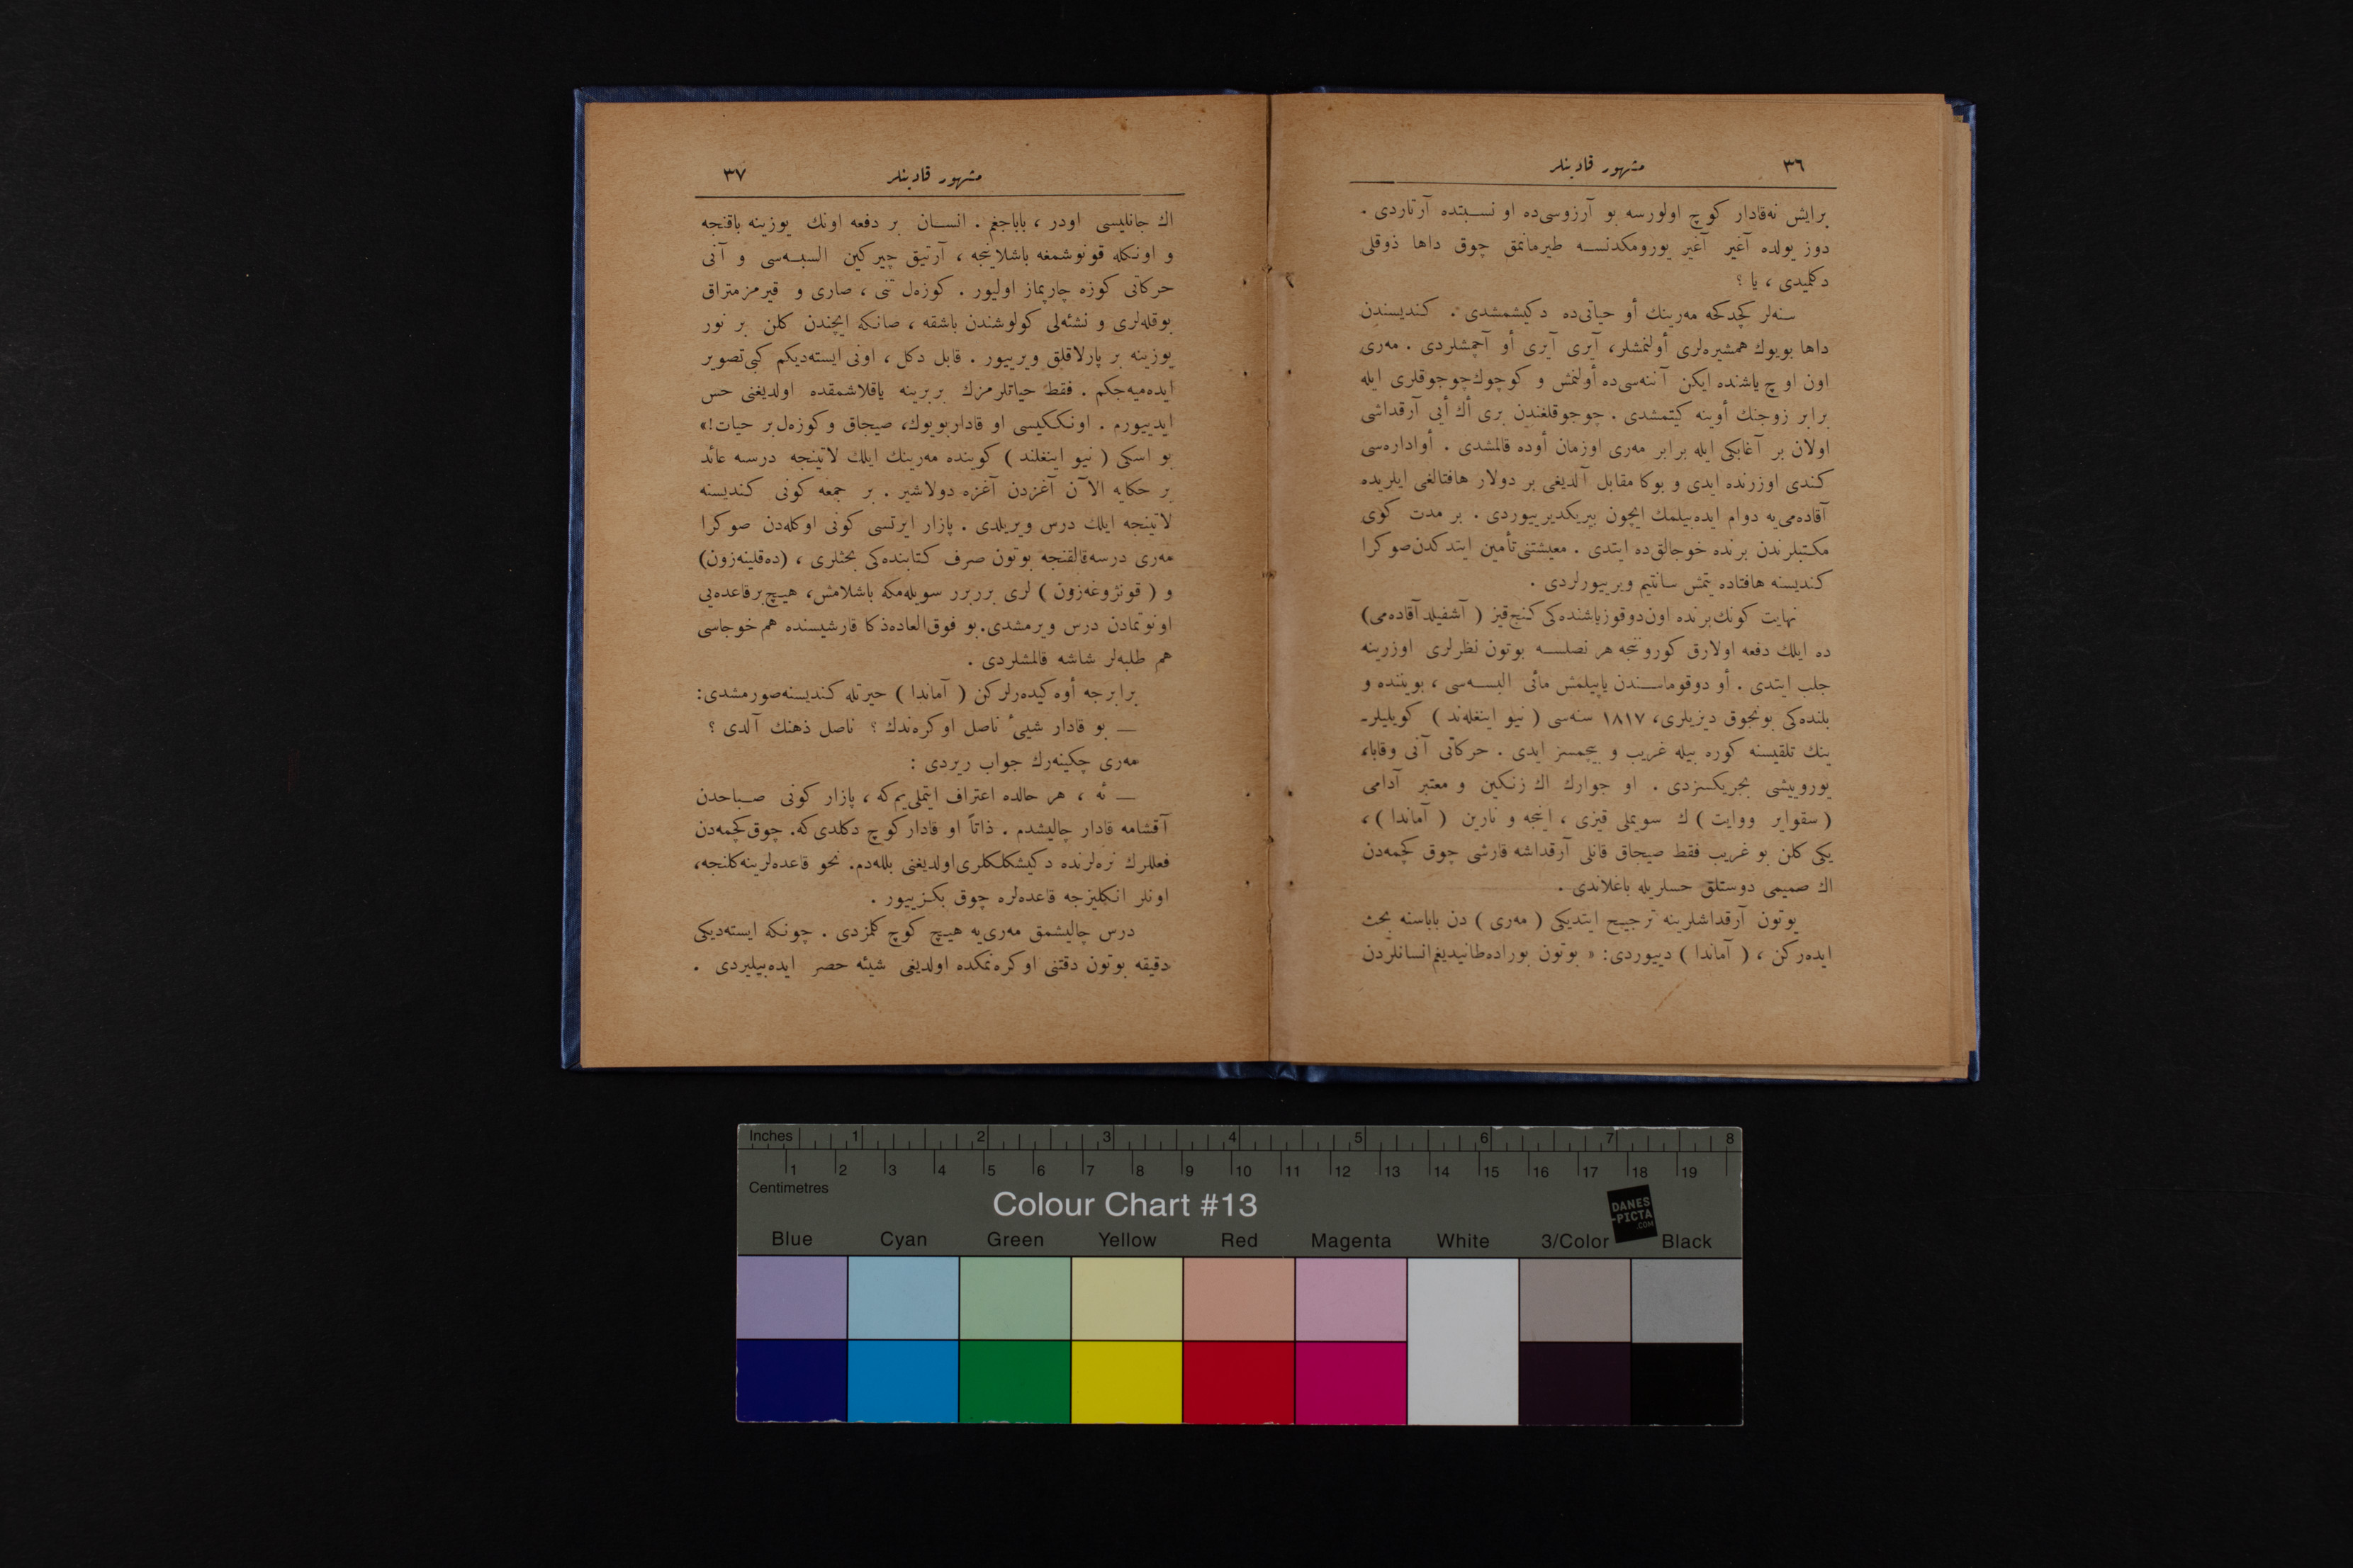 ٣٦
مشهور قادینلر
برایش نه‌قادار كوچ اولورسه بو آرزوسی‌ده او نسبتده آرتاردی .
دوز یولده آغیر آغیر یورومكدنسه طیرمانمق چوق داها ذوقلی
دكلمیدی ، یا ؟
سنه‌لر كچدكجه مه‌رینك أو حیاتی‌ده دكیشمشدی . كندیسندن
داها بویوك همشیره‌لری أولنمشلر، آیری آیری أو آچمشلردی . مه‌ری
اون اوچ یاشنده ایكن آننه‌سی‌ده أولنمش و كوچوك‌چوجوقلری ایله
برابر زوجنك أوینه كیتمشدی . چوجوقلغندن بری أك أیی آرقداشی
اولان بر آغابكی ایله برابر مه‌ری اوزمان أوده قالمشدی . أواداره‌سی
كندی اوزرنده ایدی و بوكا مقابل آلدیغی بر دولار هافتالغی ایلریده
آقاده‌می‌یه دوام ایده‌بیلمك ایچون بیریكدیرییوردی . بر مدت كوی
مكتبلرندن برنده خوجالق‌ده ایتدی . معیشتنی‌تأمین ایتدكدن‌صوكرا
كندیسنه هافتاده یتمش سانتیم ویرییورلردی .
نهایت كونك‌برنده اون‌دوقوزیاشنده‌كی كنج‌قیز ( آشفیلد آقاده‌می)
ده ایلك دفعه اولارق كورونجه هر نصلسه بوتون نظرلری اوزرینه
جلب ایتدی . أو دوقوماسندن یاپیلمش مائی البسه‌سی ، بویننده و
بلنده‌كی بونجوق دیزیلری، ١٨١٧ سنه‌سی ( نیو اینغله‌ند ) كویلیلر-
ینك تلقیسنه كوره بیله غریب و بیچمسز ایدی . حركاتی آنی وقابا،
یورویشی بجریكسزدی . او جوارك اك زنكین و معتبر آدامی
( سقوایر ووایت ) ك سویملی قیزی ، اینجه و نارین ( آماندا ) ،
یكی كلن بو غریب فقط صیجاق قانلی آرقداشه قارشی چوق كچمه‌دن
اك صمیمی دوستلق حسلریله باغلاندی .
بوتون آرقداشلرینه ترجیح ایتدیكی ( مه‌ری ) دن باباسنه بحث
ایده‌ركن ، ( آماندا ) دییوردی: « بوتون بوراده‌طانیدیغم‌انسانلردن
٣٧
مشهور قادینلر
اك جانلیسی اودر ، باباجغم . انسان بر دفعه اونك یوزینه باقنجه
و اونكله قونوشمغه باشلاینجه ، آرتیق چیركین السبه‌سی و آنی
حركاتی كوزه چارپماز اولیور . كوزه‌ل تنی ، صاری و قیرمزمتراق
بوقله‌لری و نشئه‌لی كولوشندن باشقه ، صانكه ایچندن كلن بر نور
یوزینه بر پارلاقلق ویرییور . قابل دكل ، اونی ایسته‌دیكم كبی‌تصویر
ایده‌میه‌جكم . فقط حیاتلرمزك بربرینه یاقلاشمقده اولدیغنی حس
ایدییورم . اونككیسی او قاداربویوك، صیجاق وكوزه‌ل‌بر حیات!»
بو اسكی ( نیو اینغلند ) كوینده مه‌رینك ایلك لاتینجه درسنه عائد
بر حكایه الآن آغزدن آغزه دولاشیر . بر جمعه كونی كندیسنه
لاتینجه ایلك درس ویریلدی . پازار ایرتسی كونی اوكله‌دن صوكرا
مه‌ری درسه‌قالقنجه بوتون صرف كتابنده‌كی بحثلری ، (ده‌قلینه‌زون)
و ( قونژوغه‌زون ) لری برربرر سویله‌مكه باشلامش، هیچ‌برقاعده‌یی
اونوتمادن درس ویرمشدی. بو فوق‌العاده‌ذكا قارشیسنده هم خوجاسی
هم طلبه‌لر شاشه قالمشلردی .
برابرجه أوه كیده‌رلركن ( آماندا ) حیرتله كندیسنه‌صورمشدی:
— بو قادار شیئ ناصل اوكره‌ندك ؟ ناصل ذهنك آلدی ؟
مه‌ری چكینه‌رك جواب ریردی :
— ئه ، هر حالده اعتراف ایتملی‌یم‌كه ، پازار كونی صباحدن
آقشامه قادار چالیشدم . ذاتاً او قادار كوچ دكلدی‌كه. چوق‌كچمه‌دن
فعللرك نره‌لرنده دكیشكلكلری‌اولدیغنی بلله‌دم. نحو قاعده‌لرینه‌كلنجه،
اونلر انكلیزجه قاعده‌لره چوق بكزییور .
درس چالیشمق مه‌ری‌یه هیچ كوچ كلمزدی . چونكه ایسته‌دیكی
دقیقه بوتون دقتنی اوكره‌نمكده اولدیغی شیئه حصر ایده‌بیلیردی .
Inches 1 2 3 4 5 6 7 8
1 2 3 4 5 6 7 8 9 10 11 12 13 14 15 16 17 18 19
Centimetres
Colour Chart #13
DANES-PICTA.COM
Blue Cyan Green Yellow Red Magenta White 3/Color Black